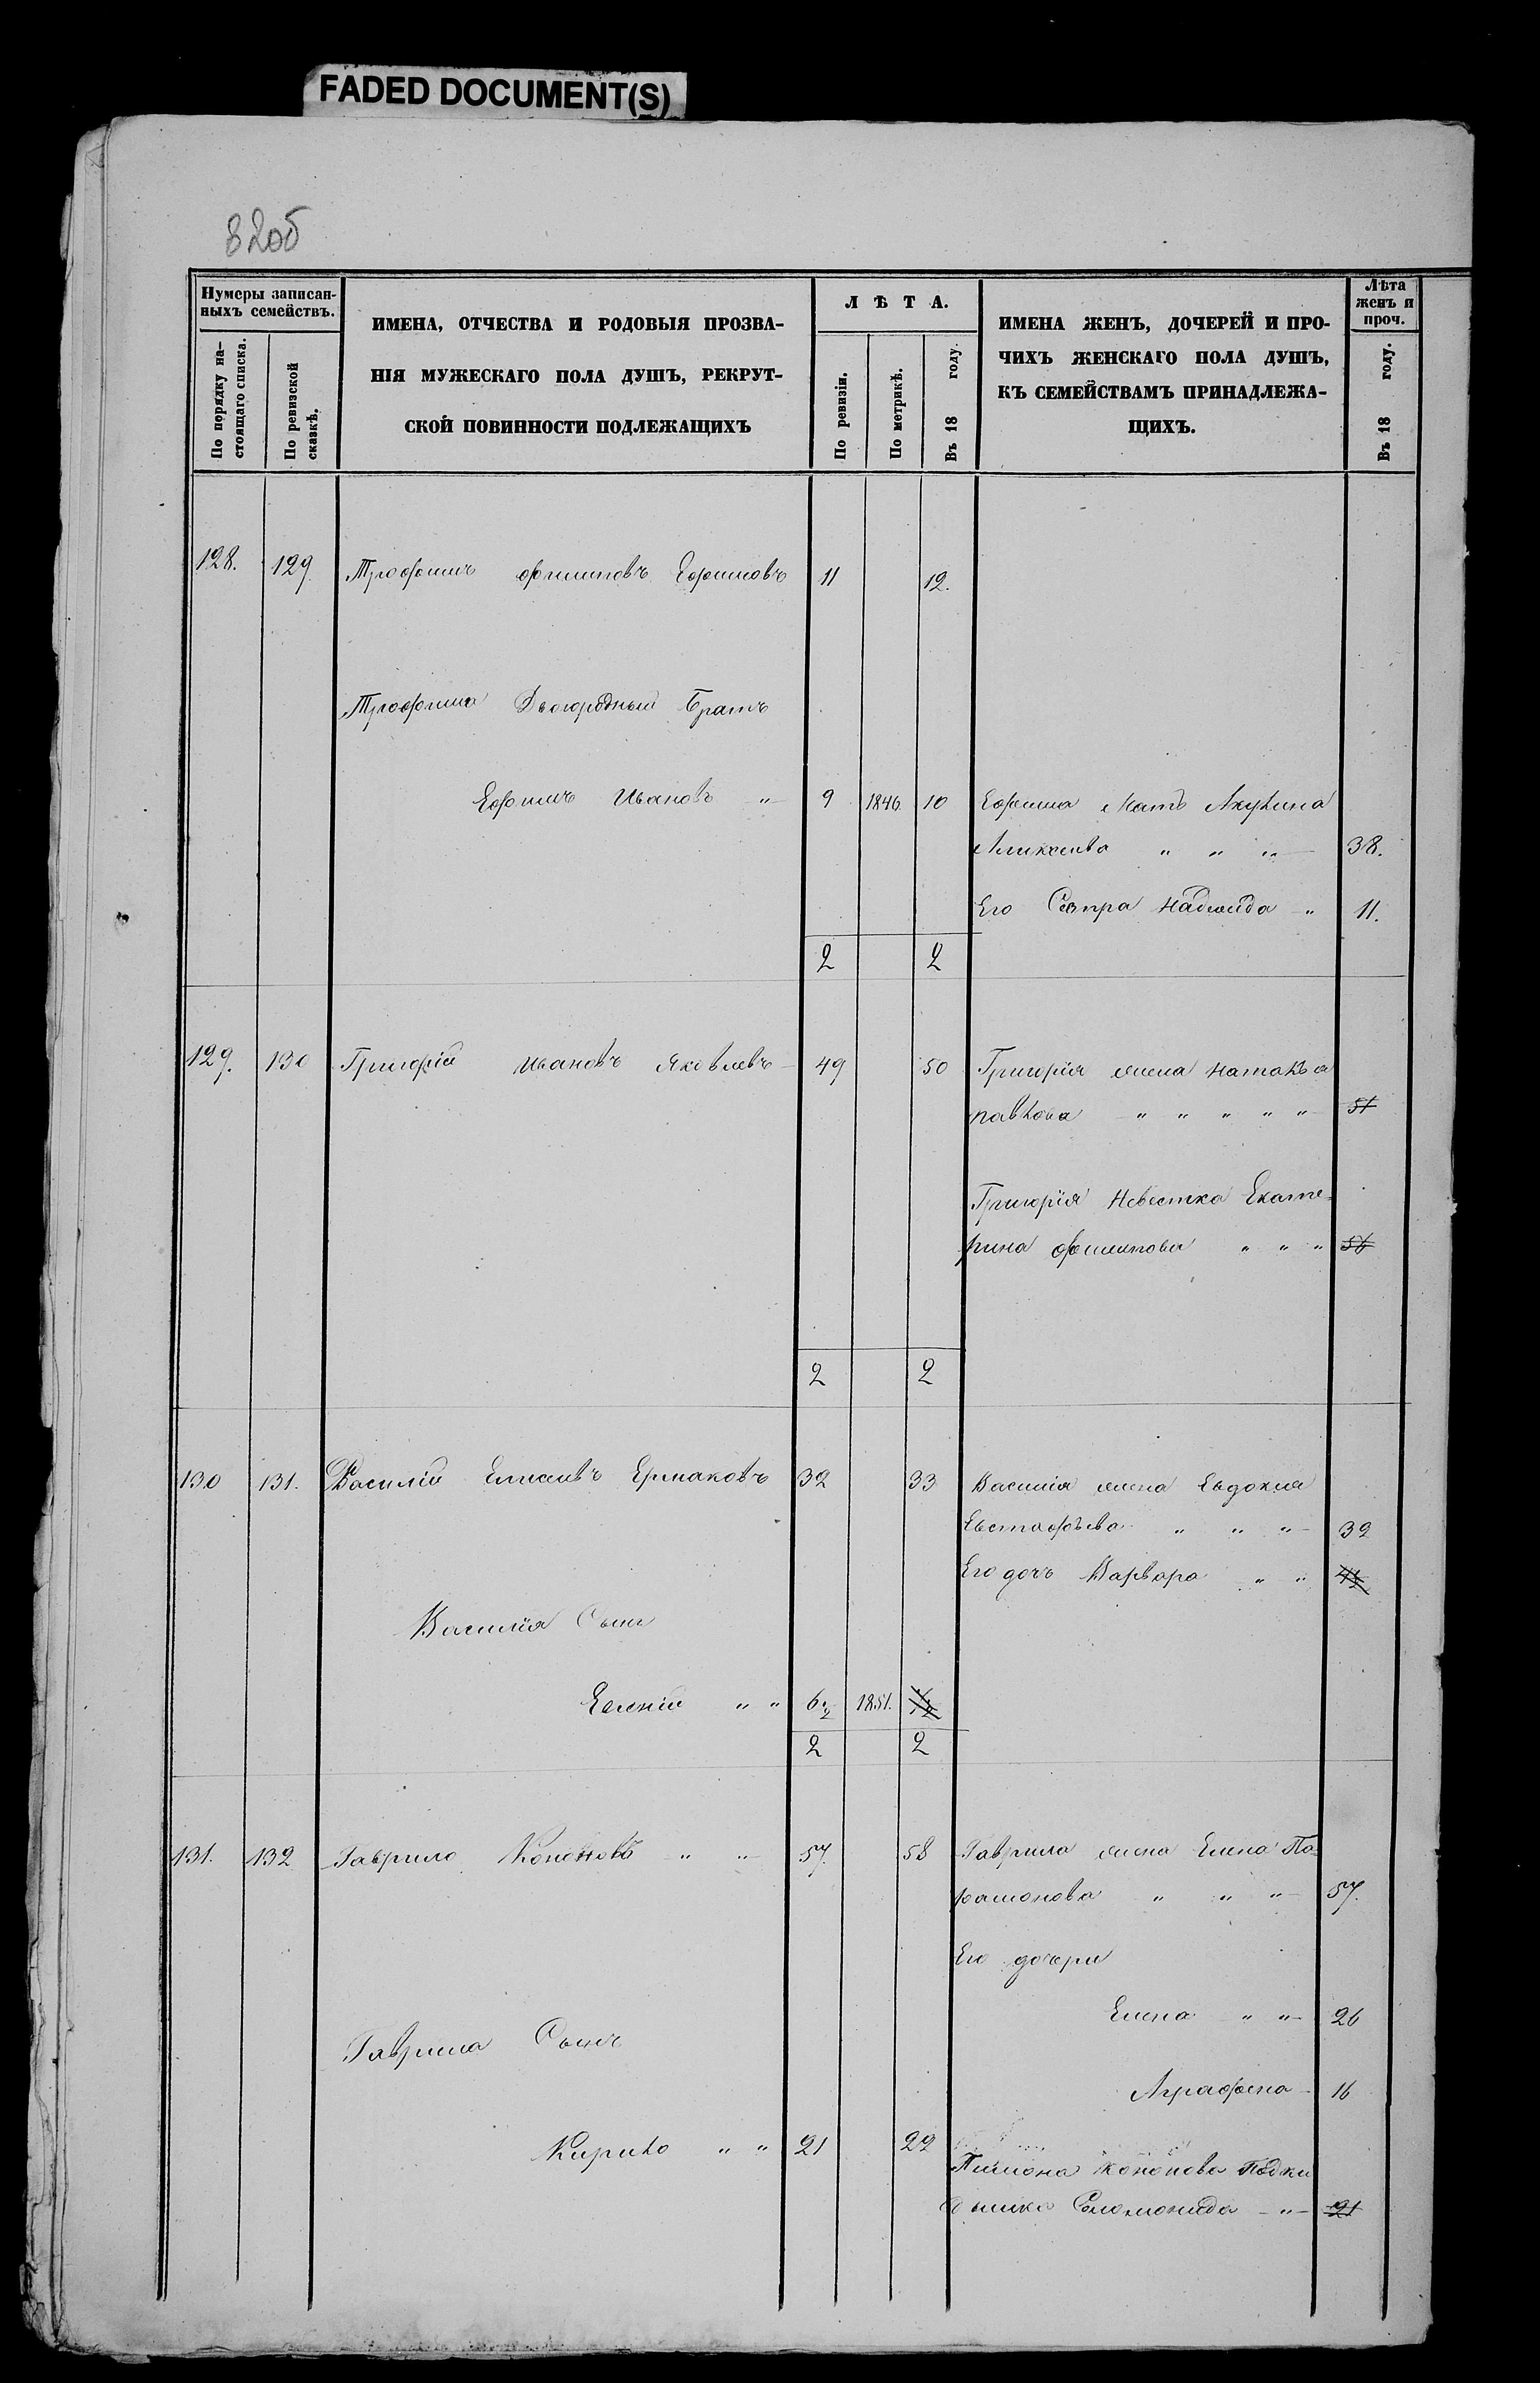 FADED DOCUMENT(S)
82об
Нумеры записан-
ныхъ семействъ.
По порядку на-
стоящаго списка.
По ревизской
сказкѣ.
ИМЕНА, ОТЧЕСТВА И РОДОВЫЯ ПРОЗВА-
НІЯ МУЖЕСКАГО ПОЛА ДУШЪ, РЕКРУТ-
СКОЙ ПОВИННОСТИ ПОДЛЕЖАЩИХЪ
ЛѢТА.
По ревизіи.
По метрикѣ.
Въ 18 году.
ИМЕНА ЖЕНЪ, ДОЧЕРЕЙ И ПРО-
ЧИХЪ ЖЕНСКАГО ПОЛА ДУШЪ,
КЪ СЕМЕЙСТВАМЪ ПРИНАДЛЕЖА-
ЩИХЪ.
Лѣта
женъ и
проч.
Въ 18 году.
128. 129 Трофимъ Филиповъ Ефимовъ 11 12.
Трофима Двоюродный Братъ
Ефимъ Ивановъ " 9 1846 10 Ефима Мать Акулина
Аликсеива " " " 38.
Его Сестра Надежда " 11.
2 2
129. 130 Григорій Ивановъ Яковлевъ 49 50 Григорія жена Наталья
павлова " " " " " 51
Григорія Невестка Екате-
рина Филипова " " " 56
2 2
130 131. Василій Елисеевъ Ермаковъ 32 33 Василія жена Евдокия
Евстафьева " " " 32
Его дочь Варвара " "
Василія Сынъ
Евгеній " " 1851.
2 2
131. 132 Гаврило Кононовъ " " 57. 58 Гаврила жена Елена Па-
рамонова " " " 57.
Его дочери
Елена " " 26
Гаврила Сынъ
Аграфена 16
Кирило " " 21 22
Пимона Кононова Подки
дышка Соломонида " 21